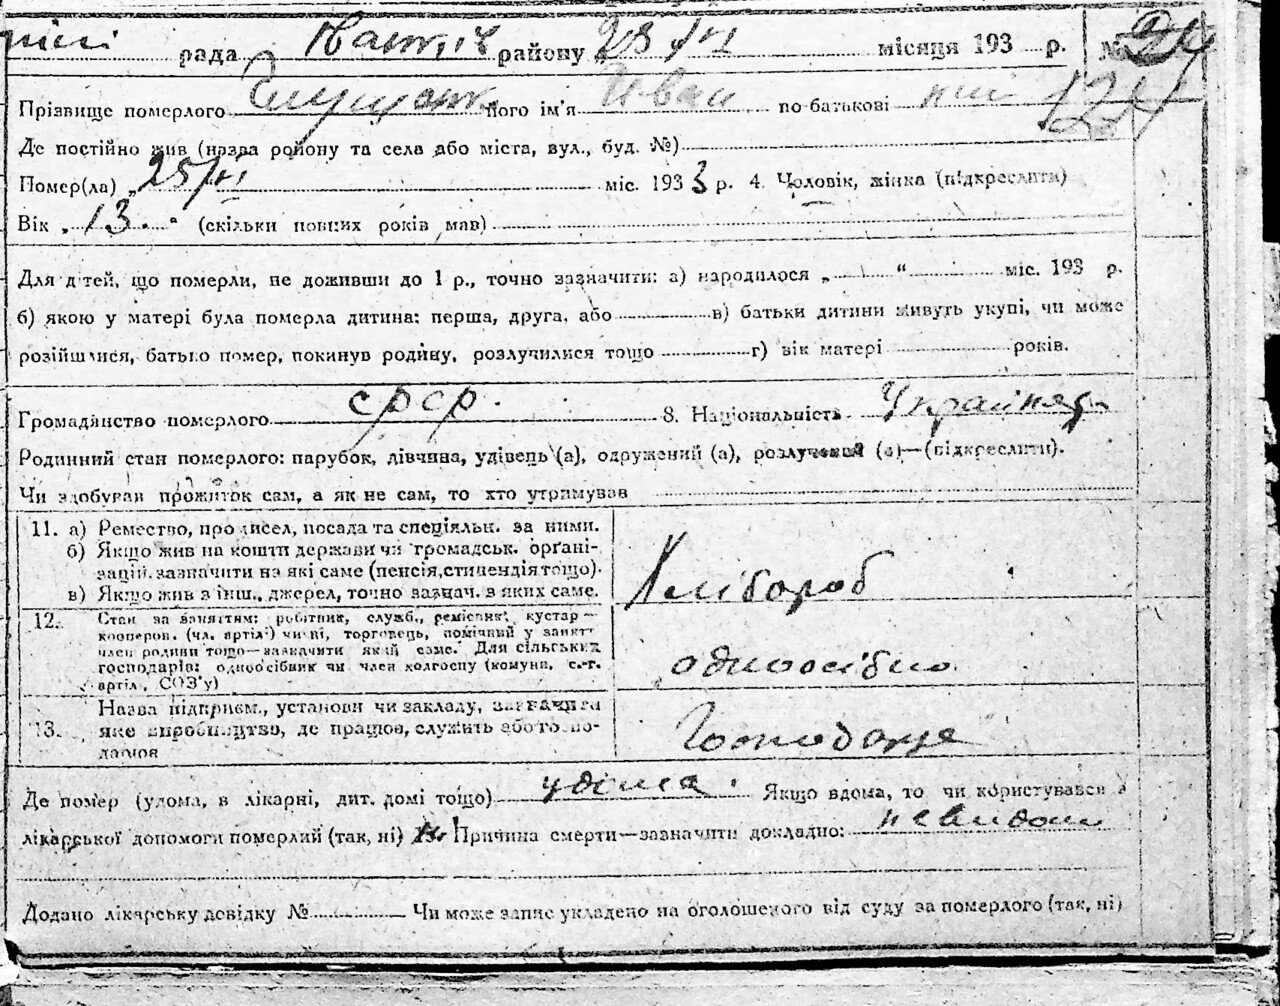 рада району 28/VI місяця 193 р. №
Прізвище померлого його ім'я Иван по-батькові 124
Де постійно жив (назва району та села або міста, вул., буд. №)
Помер(ла) „25/VI міс. 1933 р. 4. Чоловік, жінка (підкреслити)
Вік „13." (скільки повних років мав)
Для дітей, що померли, не доживши до 1 р., точно зазначити: а) народилося „ “ міс. 193 р.
б) якою у матері була померла дитина: перша, друга, або в) батьки дитини живуть укупі, чи може
розійшлися, батько помер, покинув родину, розлучилися тощо г) вік матері років.
Громадянство померлого СРСР. 8. Національність
Родинний стан померлого: парубок, дівчина, удівець (а), одружений (а), розлучений (а)—(підкреслити).
Чи здобував прожиток сам, а як не сам, то хто утримував
11. а) Ремество, промисел, посада та спеціяльн. за ними.
б) Якщо жив на кошти держави чи громадськ. орґані-
зацій. зазначити на які саме (пенсія, стипендія тощо).
в) Якщо жив з інш. джерел, точно зазнач. з яких саме.
Хлібороб
12. Стан за заняттям: робітник, служб., ремісник, кустар—
кооперов. (чл. артілі) чи ні, торговець, помічний у занятт
член родини тощо—зазначити який саме. Для сільських
господарів: одноосібник чи член колгоспу (комуни, с.-г.
артілі, СОЗ'у)
одноосібно
13. Назва підприєм., установи чи закладу, зазначити
яке виробництво, де працюв, служить або то по-
Господарце
Де помер (удома, в лікарні, дит. домі тощо) удома. Якщо вдома, то чи користувався з
лікарської допомоги померлий (так, ні) Причина смерти—зазначити докладно:
Додано лікарську довідку № Чи може запис укладено на оголошеного від суду за померлого (так, ні)